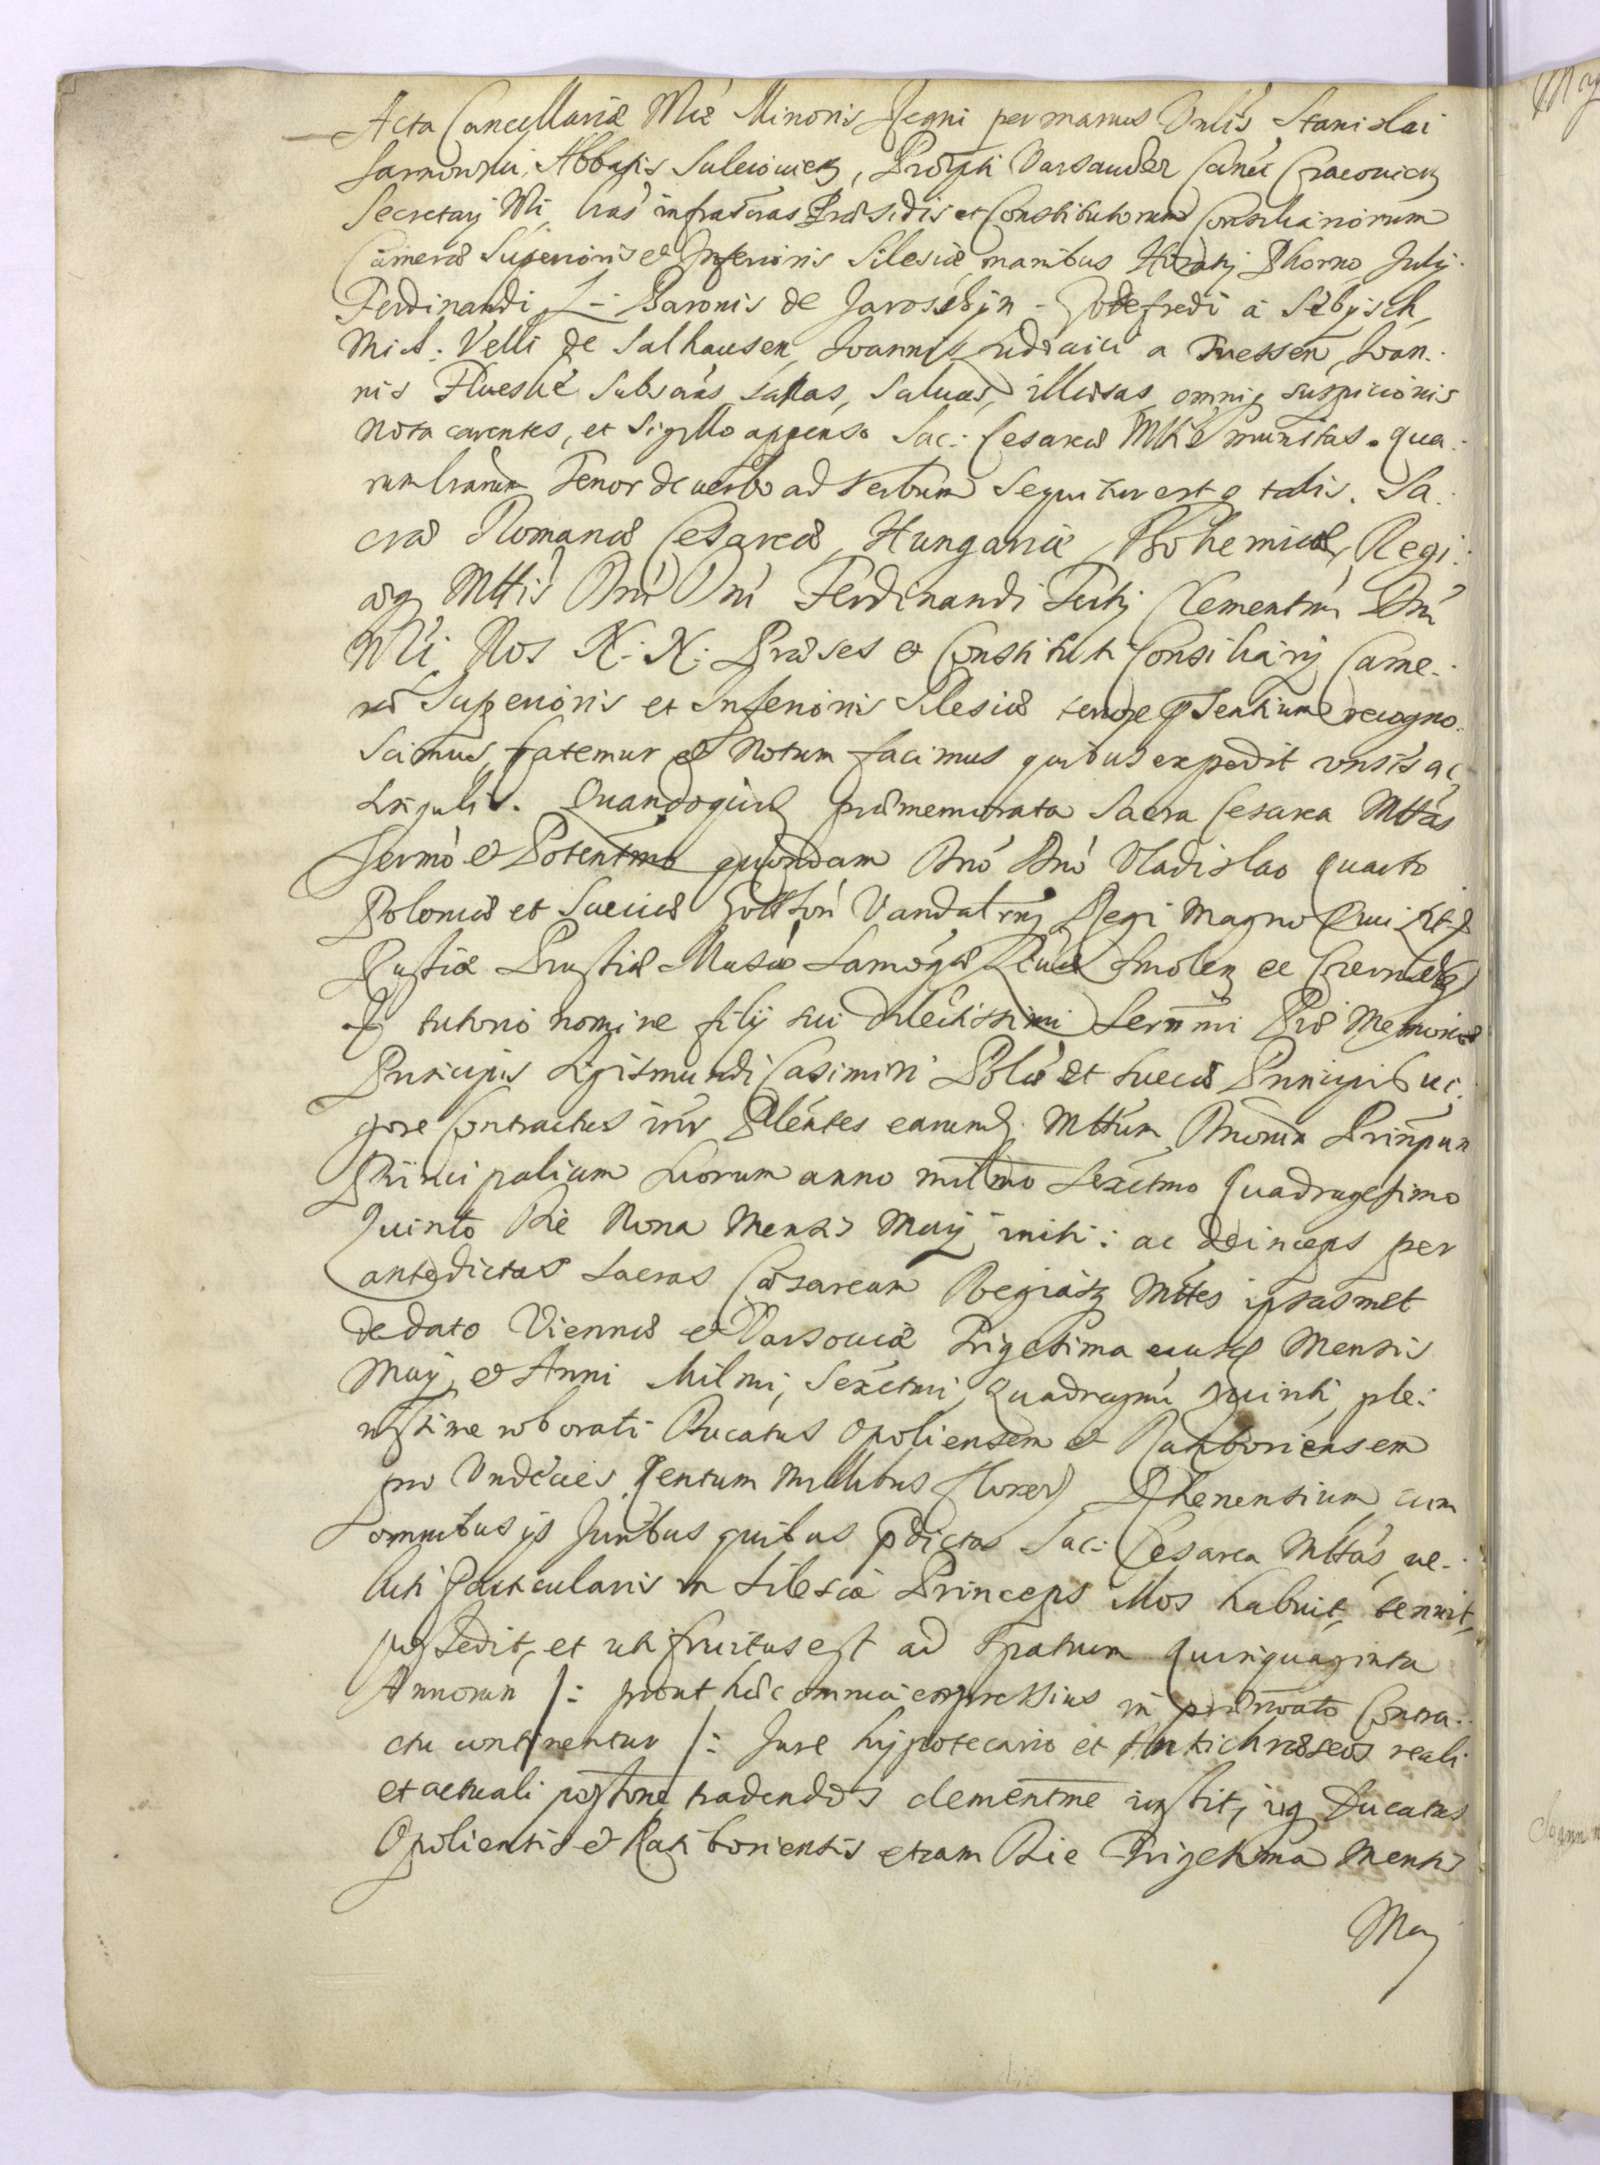 Acta Cancellariæ Mĩæ Minoris Regni per manus Vnlis Stanislai
Sarnowski, Abbatis Suleiouien, Præpti Varsauien Canci Cracouien
Secretarij Mĩ, Lras infrascras Præsidis et Constitutorum Consiliariorum
Cameræ Superioris et Inferioris Silesiæ, manibus Horatij Phorno Julij
Ferdinandi L: Baronis de Jaroschin Godefredi à Sebysch,
Mich: Velli de Salhausen, Joannis Ludouici a Tressen, Joan:
nis Subscras, Saluas, illæsas, omniq suspicionis
nota carentes, et Sigillo appenso Sac: Cesareæ Mttis munitas. qua:
rum lrarum Tenor de verbo ad verbum sequitur estq talis. Sa:
cræ Romanæ Cesareæ, Hungariæ, Bohemiæq, Regi:
æq Mttis Dni Dni Ferdinandi Tertij Clementmi Dni
Nri Nos N: N: Præses et Constituti Consiliarij Came:
ræ Superioris et Inferioris Silesiæ tenore pñtentium recogno:
scimus, fatemur et Notum facimus quibus expedit vnsis ac
singulis. Quandoquid præmemorata Sacra Cesarea Mttas
Sermo et Potentmo quondam Dno Dno Vladislao quarto
Poloniæ et Sueciæ Gotthor Vandalrmq Regi Magno Duci Lit:
Russiæ Prussiæ Masæ Samogæ Liuæ Smolen ac Czerniechq
tutorio nomine filij sui dilectissimi Sermmi Piæ Memoriæ
Principis Sigismundi Casimiri Polæ et Sueciæ Principis vi:
gore Contractus intr Plentes earund Mttum Dnorum Prinpum
Principalium suorum anno milmo Sexctmo Quadragesimo
Quinto Die Nona Mensis Maij initi: ac deinceps per
antedictas Sacras Cæsaream Regiamq Mttes ipsasmet
de dato Viennæ et Varsouiæ Trigesima eiusd Mensis
Maij, et Anni Milmi, Sexctmi, Quadragmi quinti, ple:
nissime roborati Ducatus Opoliensem et Ratiboriensem
pro Vndecies Centum Millibus Floren Rhenensium, cum
omnibus ijs Juribus quibus pdictas Sac: Cesarea Mttas, ve:
luti Particularis in Silesiæ Princeps illos habuit, tenuit,
possedit, et uti fruitus est ad spatium quinquaginta
Annorum /: prout hæc omnia expressius in prænoato Contra:
ctu continentur /: Jure hypotecario et Antichræseos reali
et actuali possione tradendos clementme iussit, ijq Ducatus
Opoliensis et Ratiboriensis etiam Die Trigesima Mensis
Maij